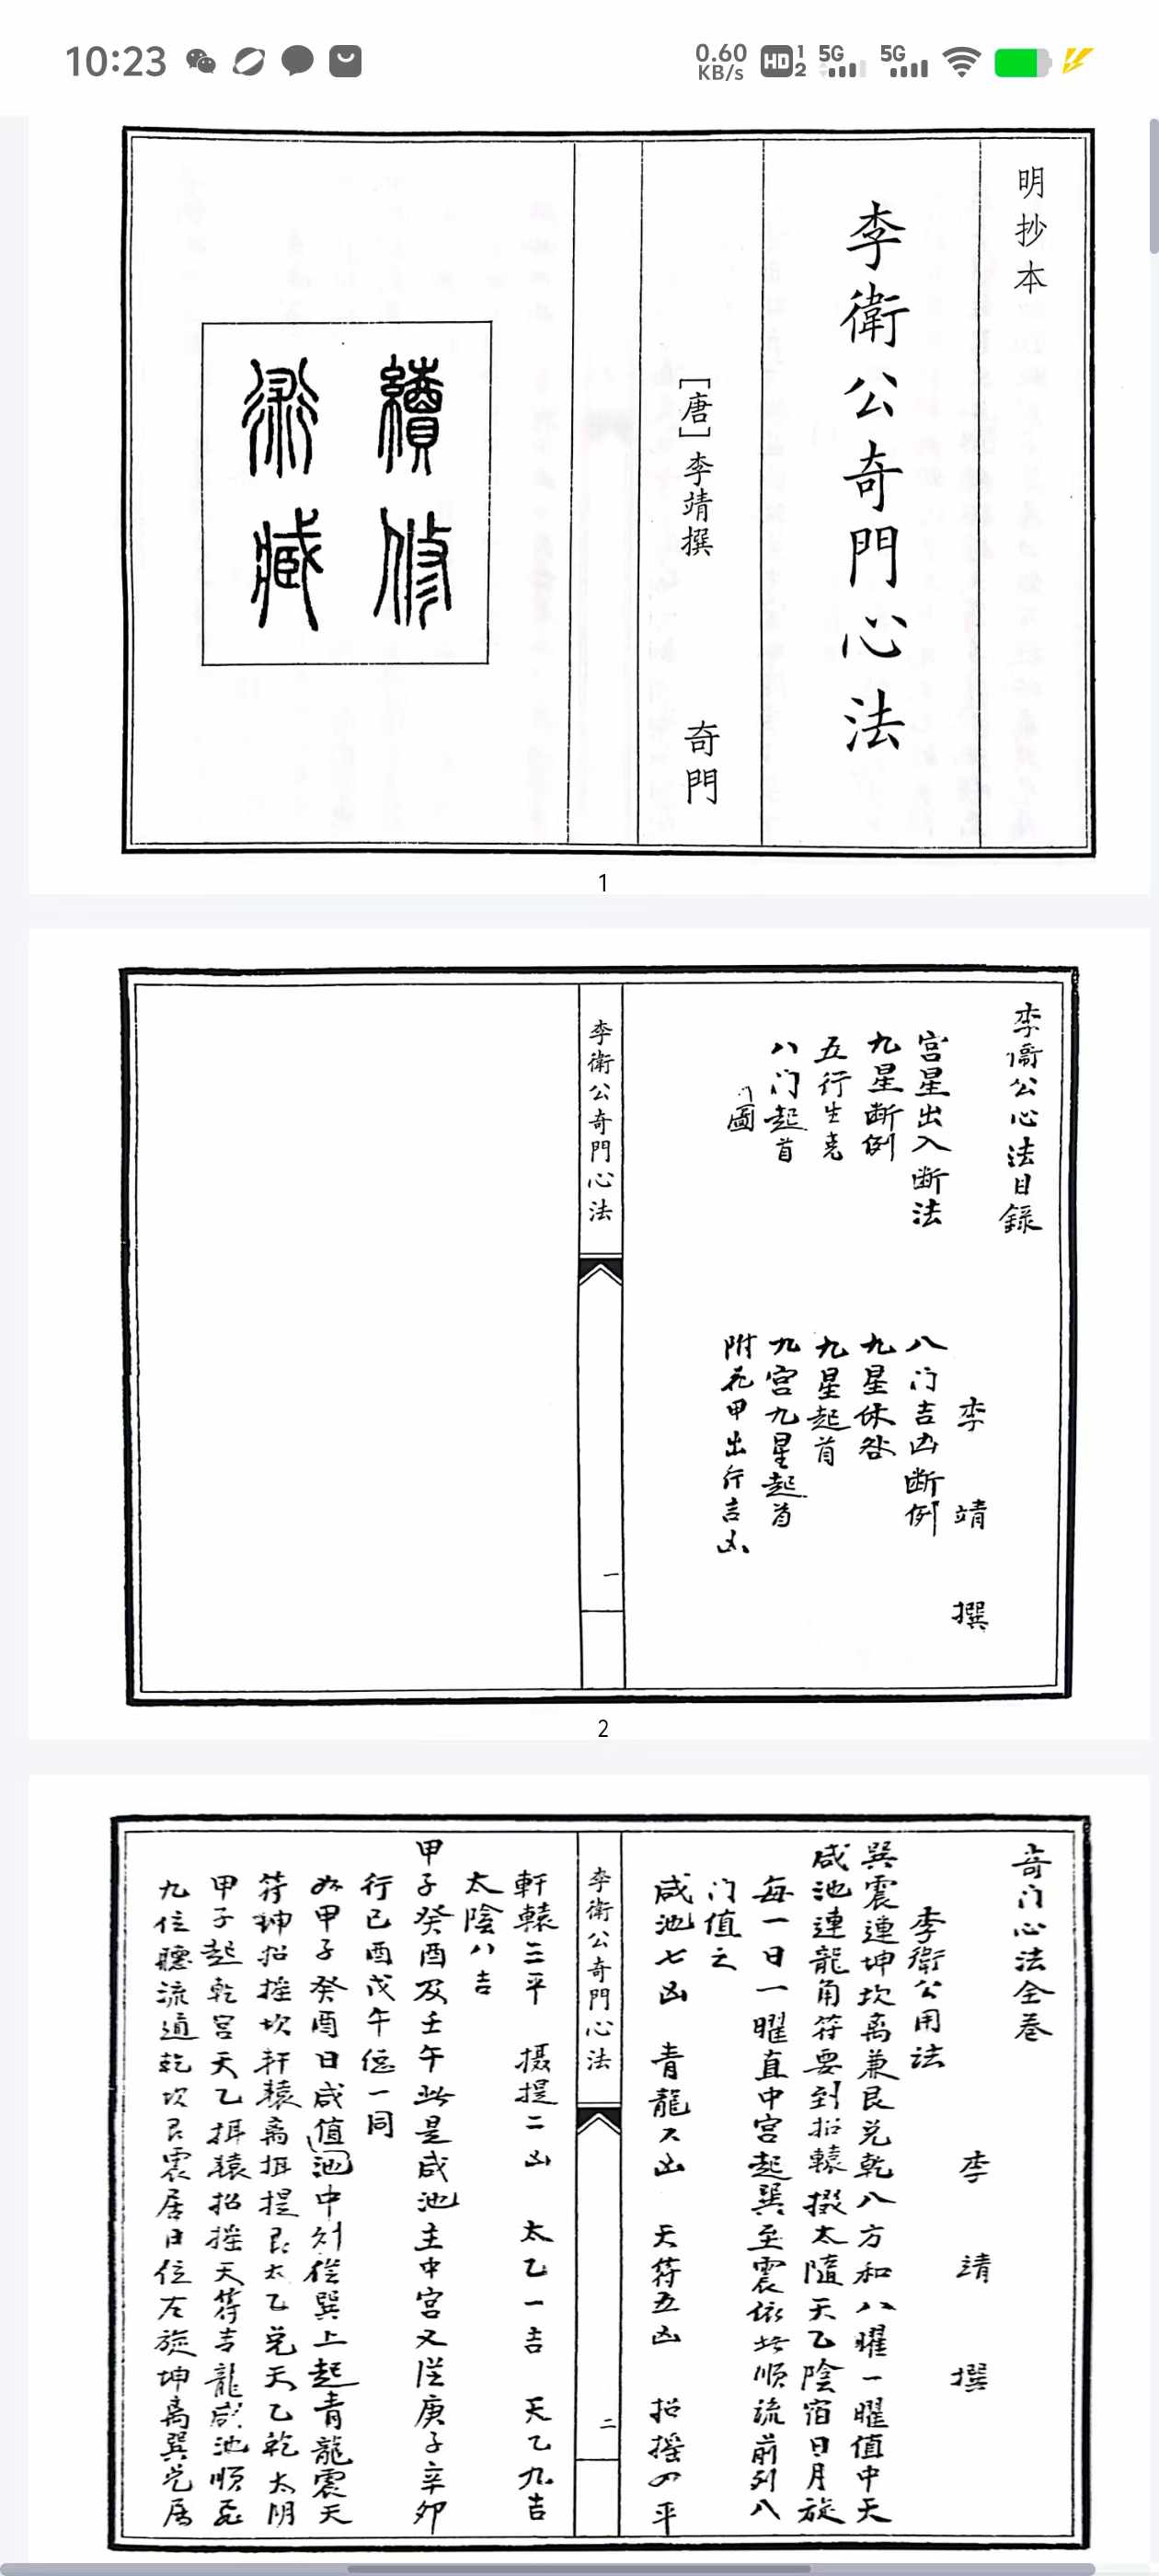 10:23
0.60
KB/s
HD
1
2
5G
5G
明抄本
李衛公奇門心法
[唐]李靖撰
奇門
續修
術藏
1
李衞公心法目錄
李靖撰
宫星出入断法
八门吉凶断例
九星断例
九星休咎
五行生克
九星起首
八门起首
九宫九星起首
圖
附花甲出行吉凶
李衛公奇門心法
一
2
奇门心法全卷
李靖撰
李衛公用法
巽震連坤坎离兼艮兑乾八方和八曜一曜值中天
咸池連龍角符要到招轅摄太隨天乙陰宿日月旋
每一日一曜直中宫起巽至震依此順流前列八
门值之
咸池七凶 青龍六凶 天符五凶 招摇四平
李衛公奇門心法
二
軒轅三平 摄提二凶 太乙一吉 天乙九吉
太陰八吉
甲子癸酉及壬午此是咸池主中宫又從庚子辛卯
行已酉戊午 一同
如甲子癸酉日咸值池中 從巽上起青龍震天
符坤招摇坎軒轅离 提艮太乙兑天乙乾太阴
甲子起乾宫天乙 轅招摇天符吉龍咸池順
九位 流 乾坎艮震居日位左旋坤离巽兑居